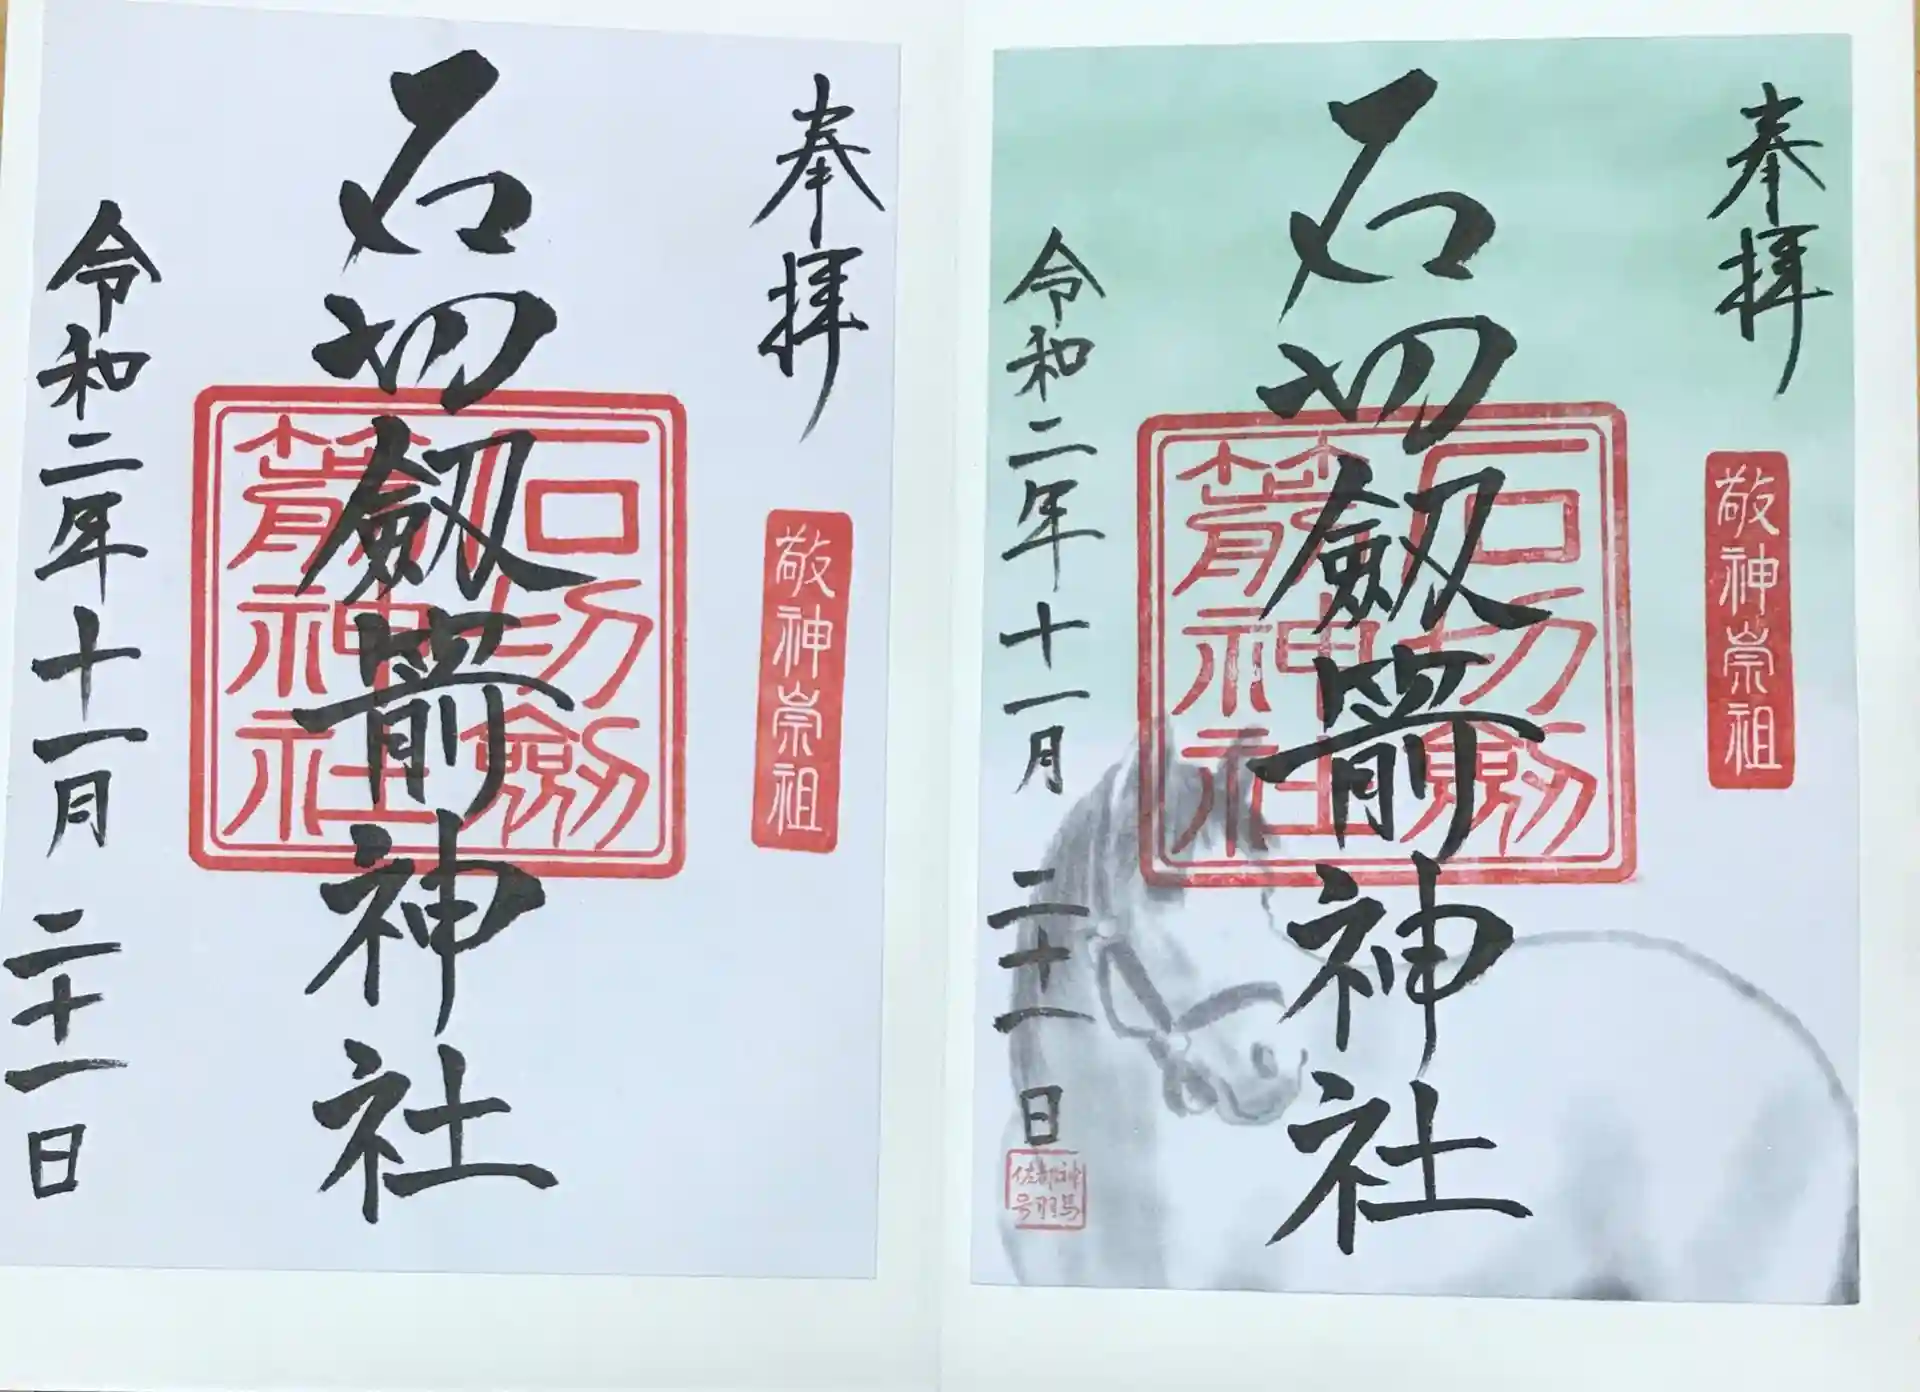 奉拝
敬神崇祖
石切劔箭神社
石切劔
箭神社
令和二年十一月二十一日
奉拝
敬神崇祖
石切劔箭神社
石切劔
箭神社
令和二年十一月二十一日
神馬
都羽
佐号